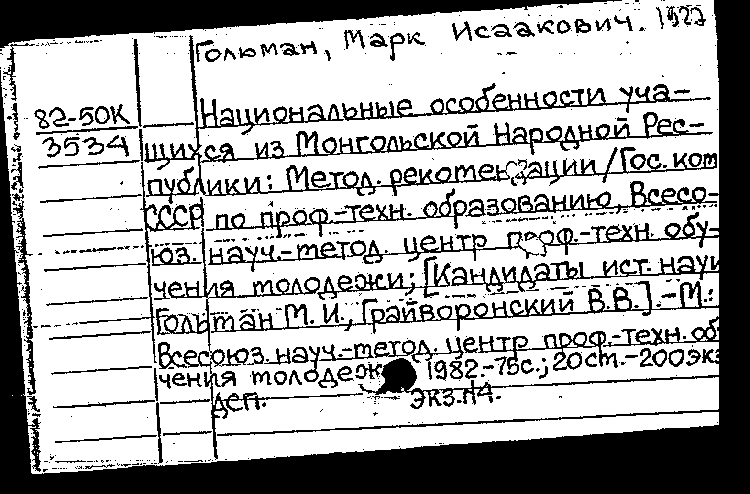 Гольман, Марк Исаакович. 1927
82-50К
3534
Национальные особенности уча-
щихся из Монгольской Народной Рес-
публики: Метод. рекомендации/Гос. ком
СССР по проф.-техн. образованию, Всесо-
юз. науч.-метод. центр проф.-техн. обу-
чения молодежи; [Кандидаты ист. наук
Гольман М.И., Грайворонский В.В.].-М.:
Всесоюз. науч.-метод. центр проф.-техн. об
чения молодеж 1982.-75с.; 20см.-200экз
ДСП. ЭКЗ.N4.